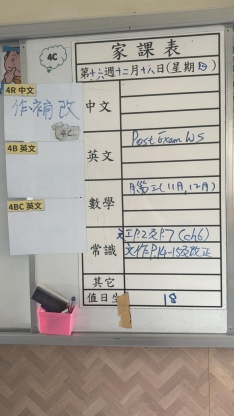 4C
家課表
第十六週十二月十八日(星期日)
4R 中文
作補改
4C
中文
4B 英文
英文
Post Exam WS
4BC 英文
數學
(11月,12月)
工P.2及P.7 (ch6)
常識
文作P.14-15及改正
其它
值日生
18